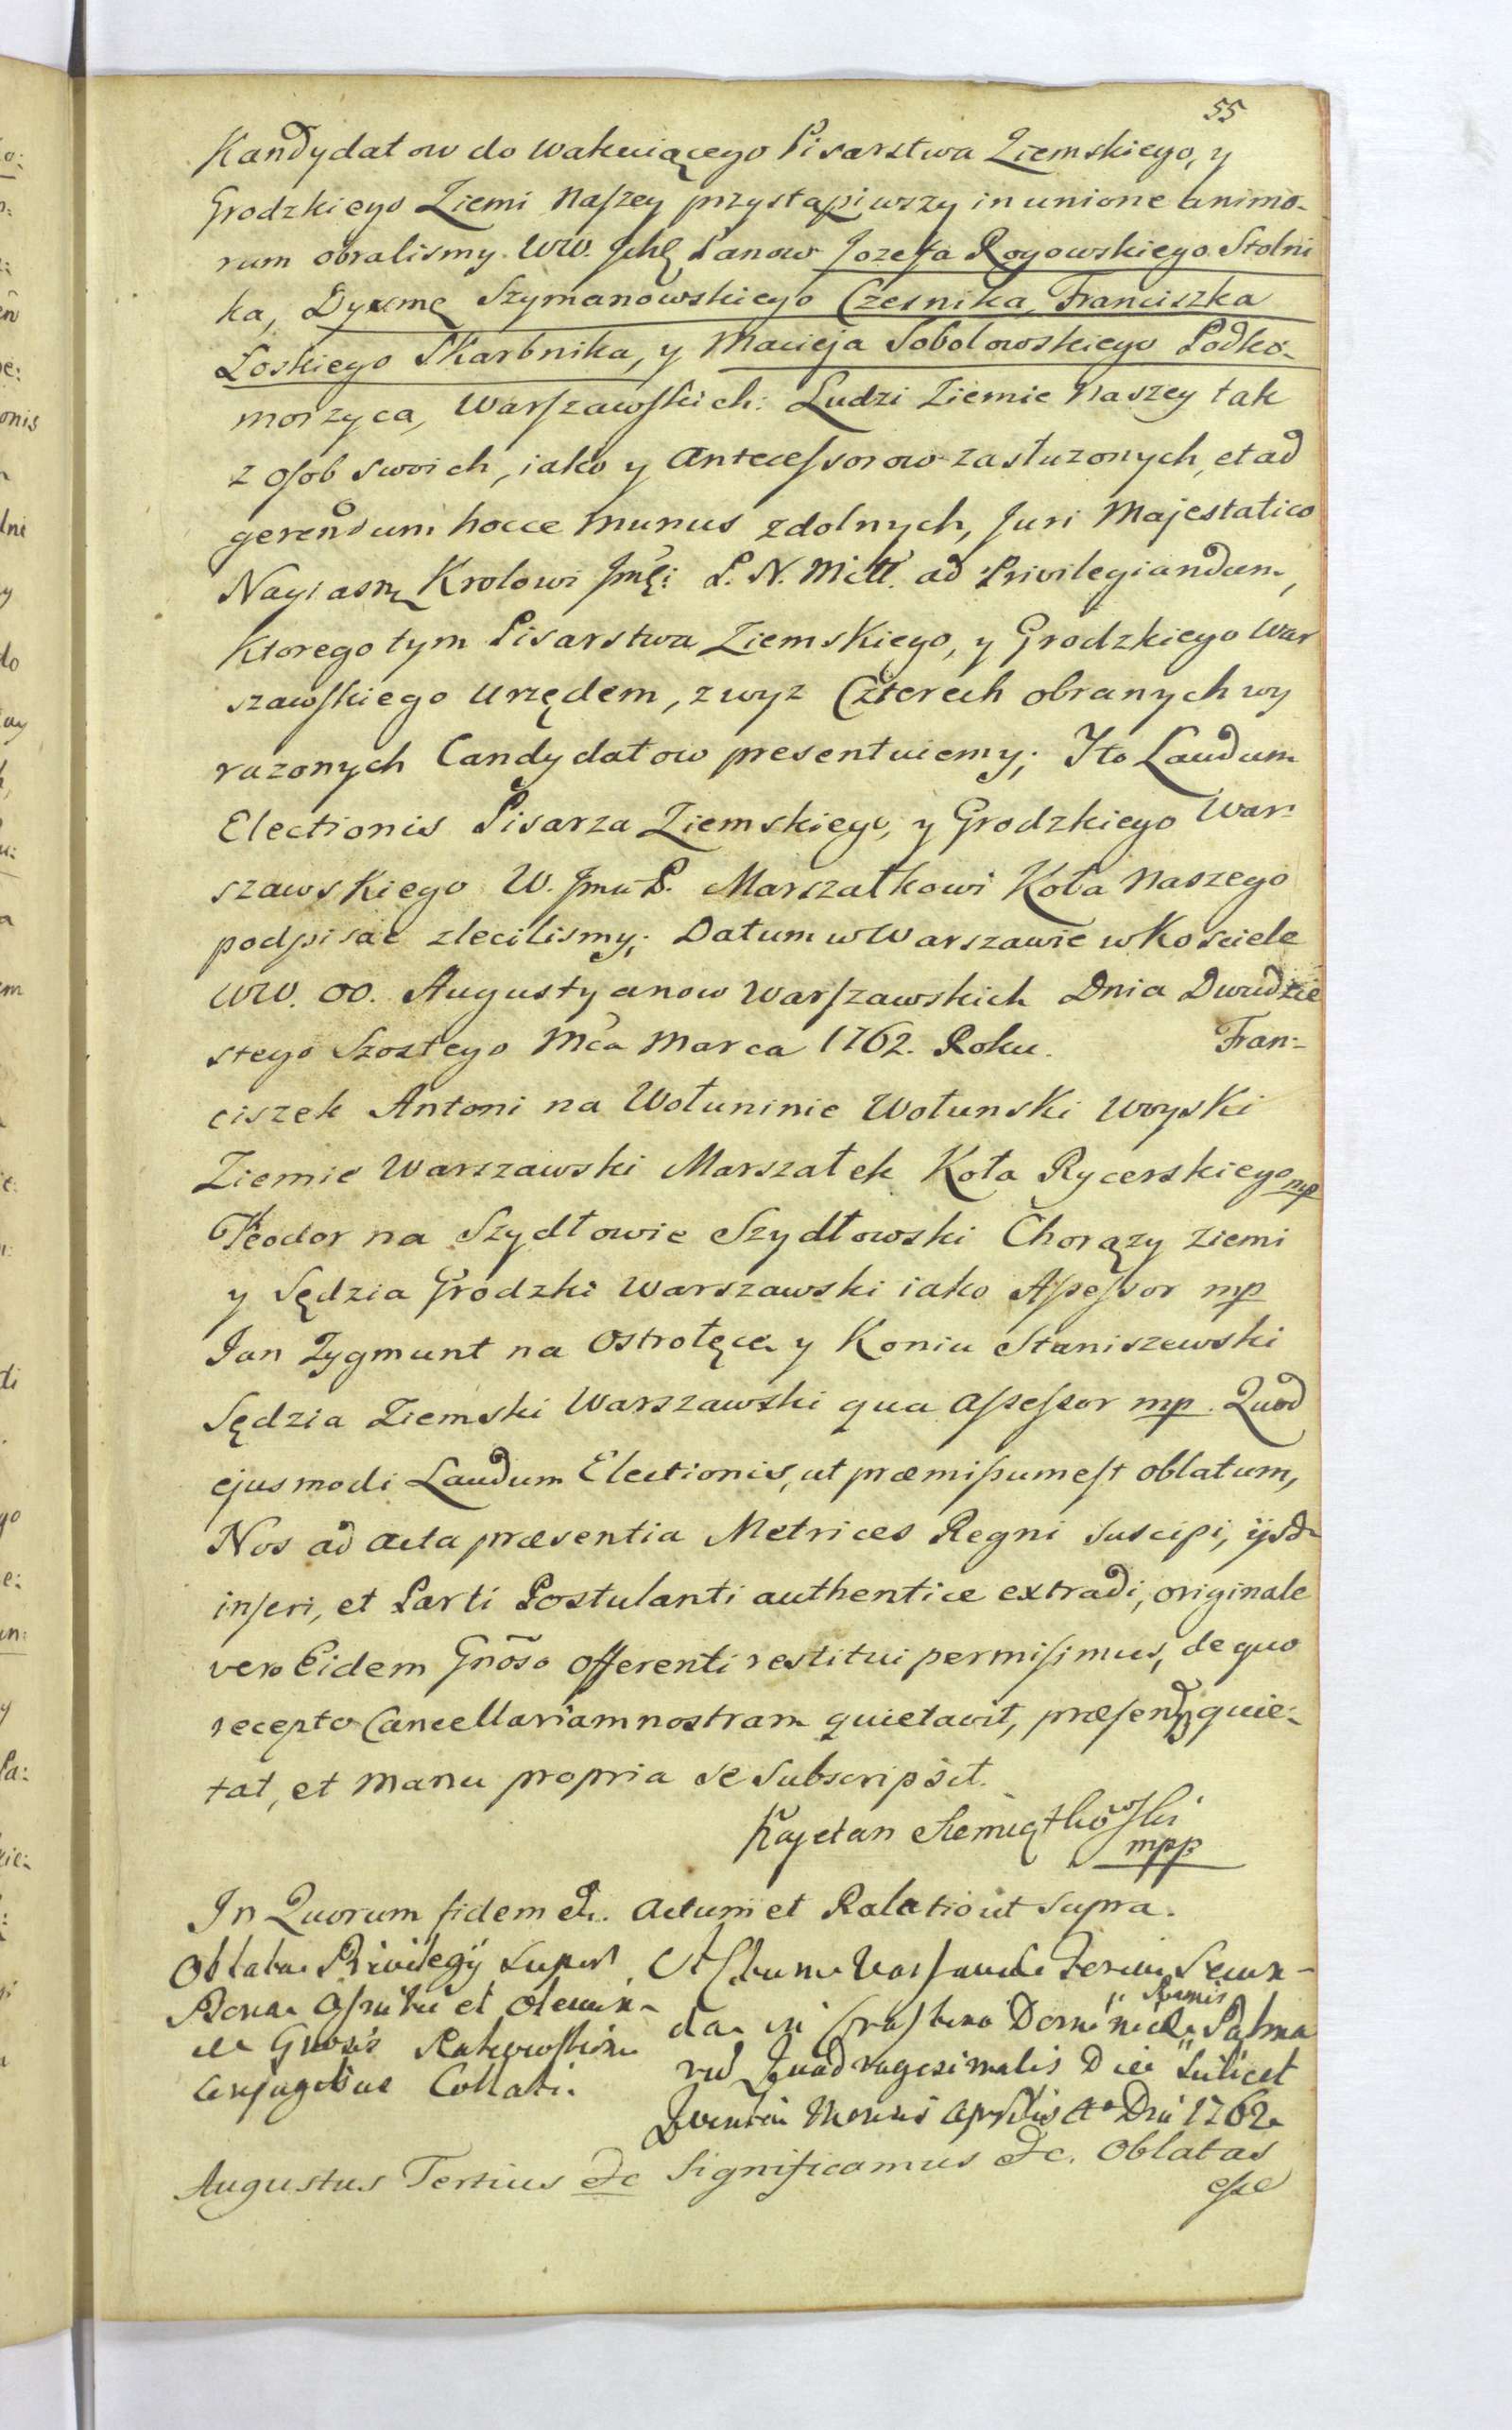 55
Kandydatow do wakuiącego Pisarstwa Ziemskiego, y
Grodzkiego Ziemi Naszey przystąpiwszy in unione animo-
rum obralismy WW. Ichę Panow Jozefa Rogowskiego Stolni
ka, Dyxmę Szymanowskiego Czesnika, Franciszka
Łoskiego Skarbnika, y Macieja Sobolowskiego Podko-
morzyca, Warszawskich: Ludzi Ziemie Naszey tak
z osob swoich, iako y Antecessorow zasłuzonych, et ad
gerendum hocce munus zdolnych, Juri Majestatico
Nayiasn Krolowi Jmći P. N. Mił. ad Privilegiandum,
Ktorego tym Pisarstwa Ziemskiego, y Grodzkiego War
szawskiego Urzędem, z wyz Czterech obranych wy
razonych Candydatow presentuiemy; Ito Laudum
Electionis Pisarza Ziemskiego, y Grodzkiego War-
szawskiego W. Jmu P. Marszałkowi Koła Naszego
podpisac zlecilismy; Datum w Warszawie w Kosciele
WW. OO. Augustyanow Warszawskich Dnia Dwudzie
stego Szostego Mca Marca 1762. Roku. Fran-
ciszek Antoni na Wołuninie Wołunski Woyski
Ziemie Warszawski Marszałek Koła Rycerskiego mp
Teodor na Szydłowie Szydłowski Chorązy Ziemi
y Sędzia Grodzki Warszawski iako Assessor mp
Jan Zygmunt na Ostrołęce y Koniu Staniszewski
Sędzia Ziemski Warszawski qua Assessor mp. Quod
ejusmodi Laudum Electionis, ut præmissum est oblatum,
Nos ad Acta præsentia Metrices Regni suscipi, ijsd
inseri, et Parti Postulanti authentice extradi, originale
vero Eidem Gnoso Offerenti restitui permisimus, de quo
recepto Cancellariam nostram quietavit, præsentq quie-
tat, et manu propria se subscripsit.
Kajetan Siemiątkowski
mpp:
In Quorum fidem etc. Actum et Relatio ut supra.
Oblata Privilegij super
Bona et
Gnosis
Conjugibus Collati.
Actum Varsaviæ Feria Secun-
da in Crastino Dominicæ Ramis Palma
rum Quadragesimalis Die Scilicet
Quinta Mensis Aprilis Ao Dni 1762
Augustus Tertius etc Significamus etc. Oblatas
esse